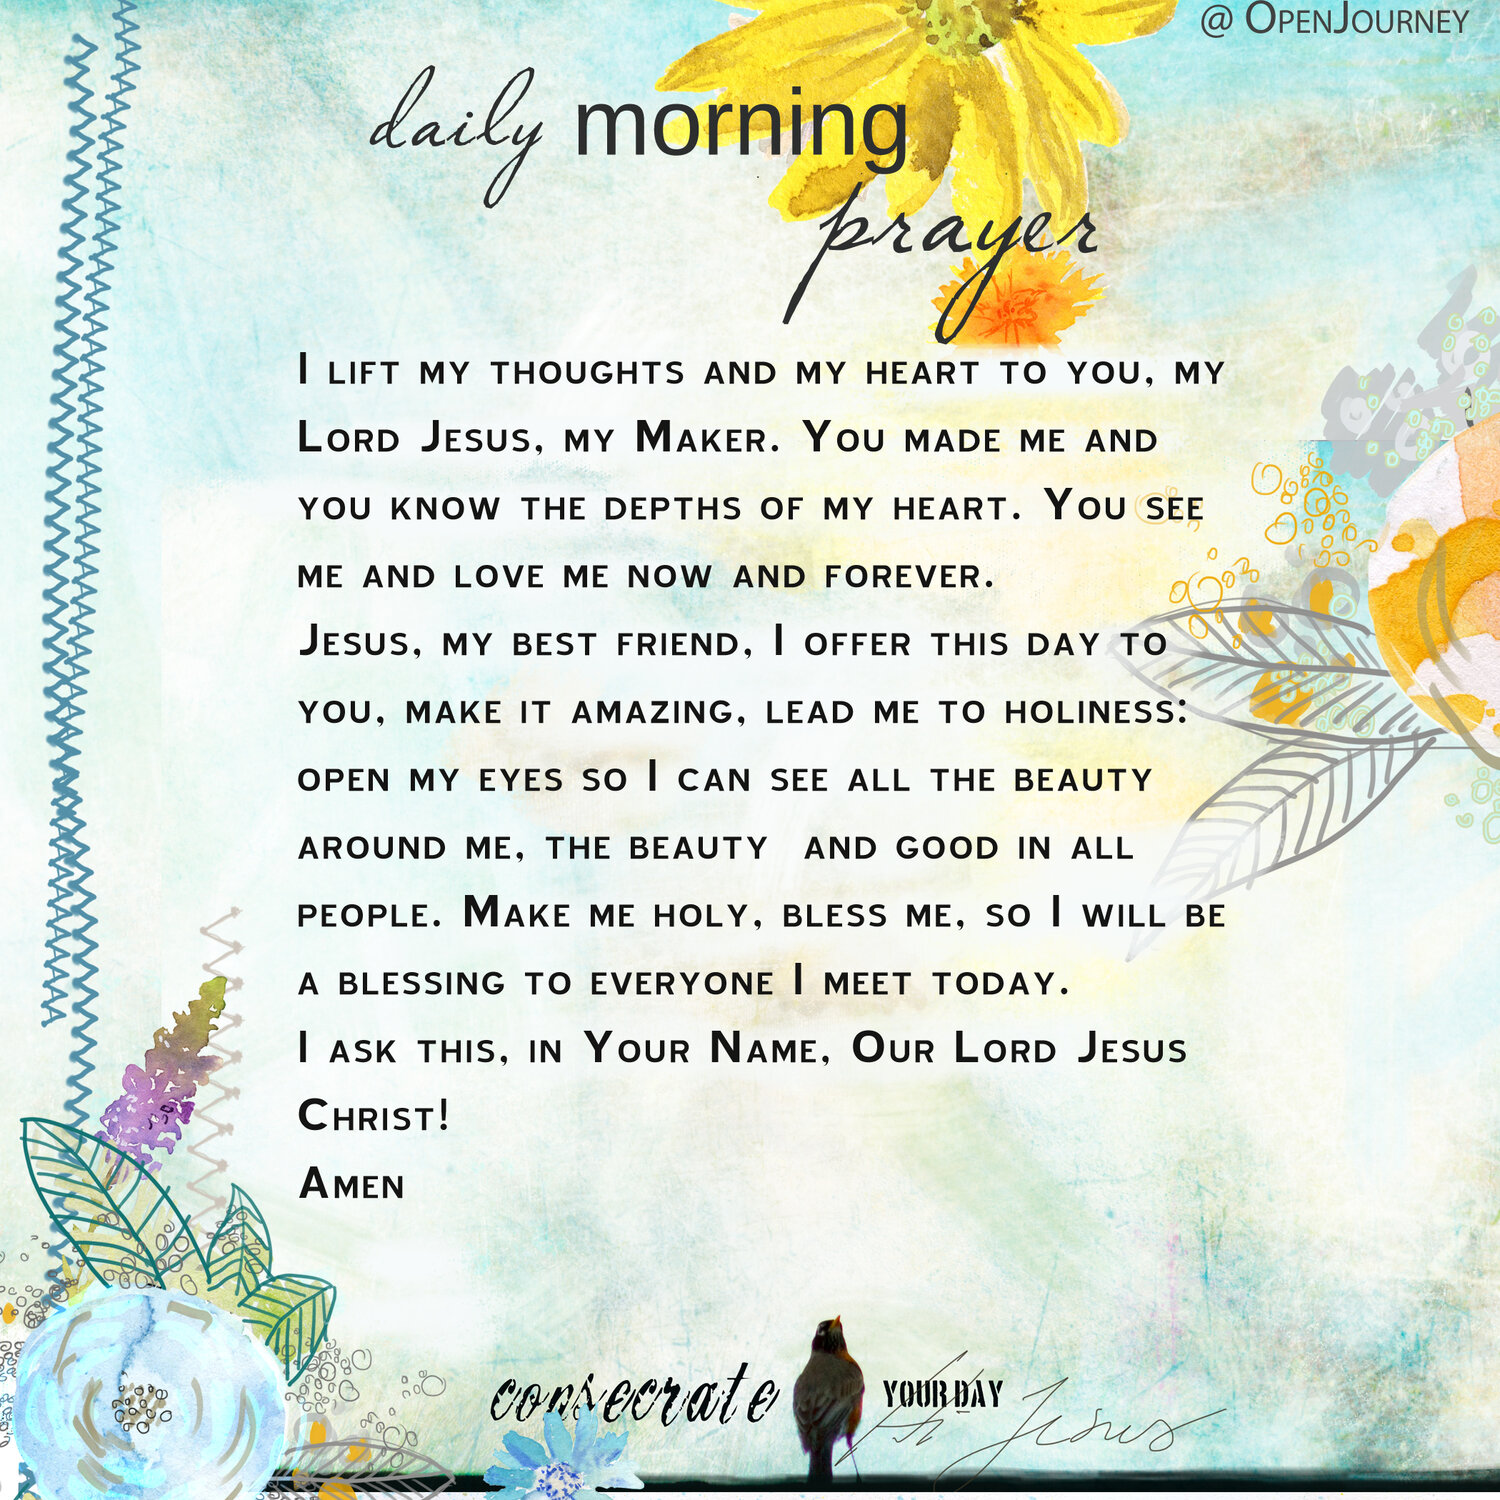 @ OpenJourney
daily morning
prayer
I lift my thoughts and my heart to you, my
Lord Jesus, my Maker. You made me and
you know the depths of my heart. You see
me and love me now and forever.
Jesus, my best friend, I offer this day to
you, make it amazing, lead me to holiness:
open my eyes so I can see all the beauty
around me, the beauty and good in all
people. Make me holy, bless me, so I will be
a blessing to everyone I meet today.
I ask this, in Your Name, Our Lord Jesus
Christ!
Amen
consecrate YOUR DAY
Jesus